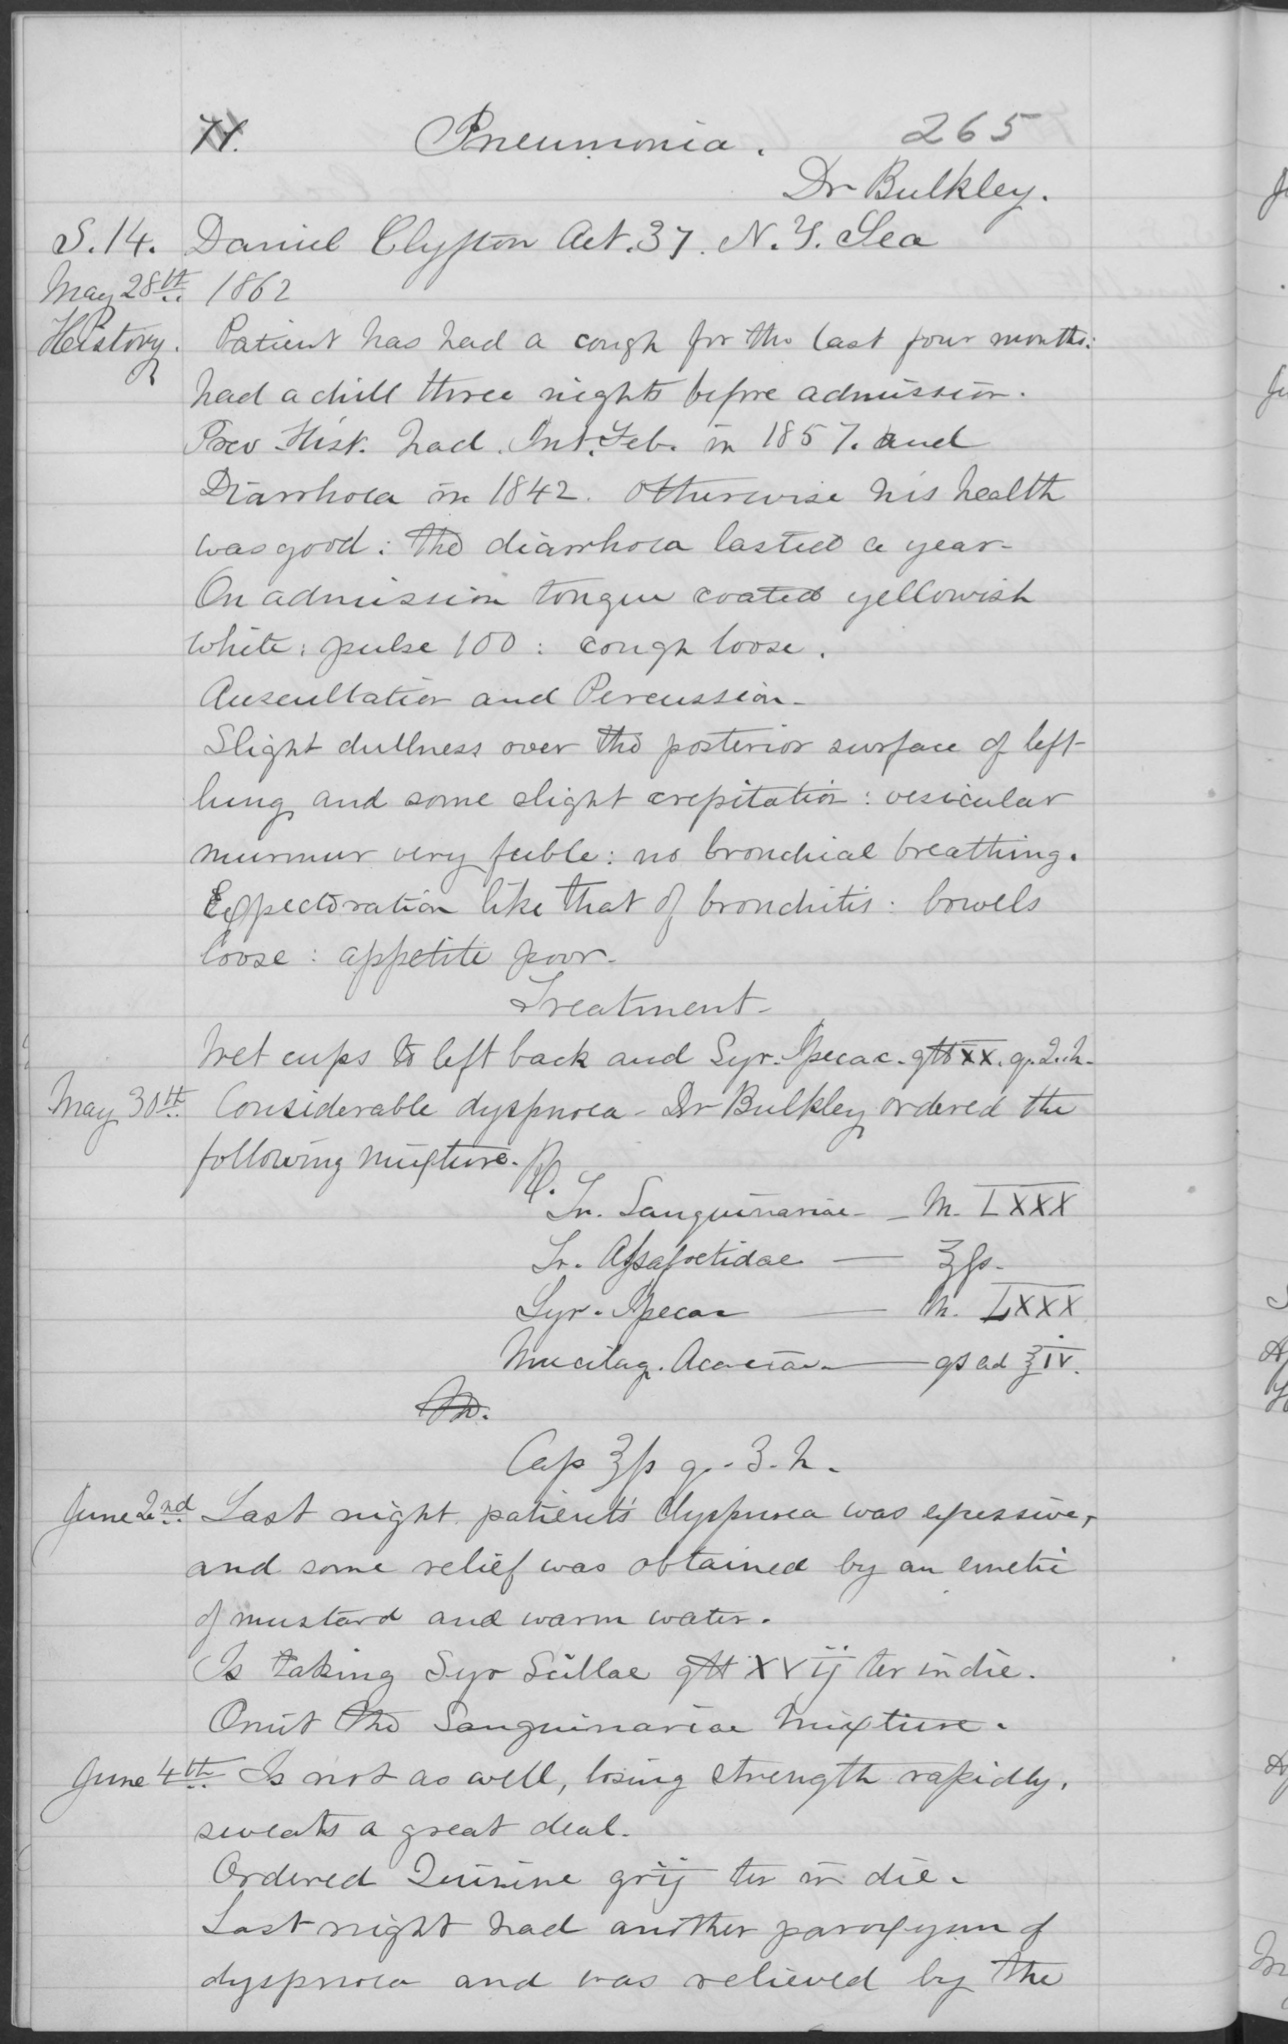 71. Pneumonia. 265
Dr Bulkley.
S. 14. Daniel Clyfton Aet. 37. N. Y. Sea
May 28th 1862
History. Patient has had a cough for the last four months:
had a chill three nights before admission.
Prev Hist. had Int. Feb. in 1857. and
Diarrhoea in 1842. otherwise his health
was good: the diarrhoea lasted a year-
On admission tongue coated yellowish
white: pulse 100: cough loose.
Auscultation and Percussion-
Slight dullness over the posterior surface of left
lung and some slight crepitation: vesicular
murmur very feeble: no bronchial breathing.
Expectoration like that of bronchitis: bowels
loose: appetite poor-
Treatment-
Wet cups to left back and Syr. Ipecac. gtt xx. q. 2. h-
May 30th Considerable dyspnoea- Dr Bulkley ordered the
following mixture. ℞.
Tr. Sanguinariae - M. LXXX
Tr. Assafoetidae — ℥ss-
Syr. Ipecac — M. LXXX
Mucilag. Acaciae — qs ad ℥iv.
M.
Cap ℥ss q. 3. h.
June 2nd Last night patient's dyspnoea was excessive,
and some relief was obtained by an emetic
of mustard and warm water.
Is taking Syr Scillae gtt XVij ter in die.
Omit the Sanguinariae mixture.
June 4th Is not as well, losing strength rapidly.
sweats a great deal.
Ordered Quinine grij ter in die.
Last night had another paroxysm of
dyspnoea and was relieved by the